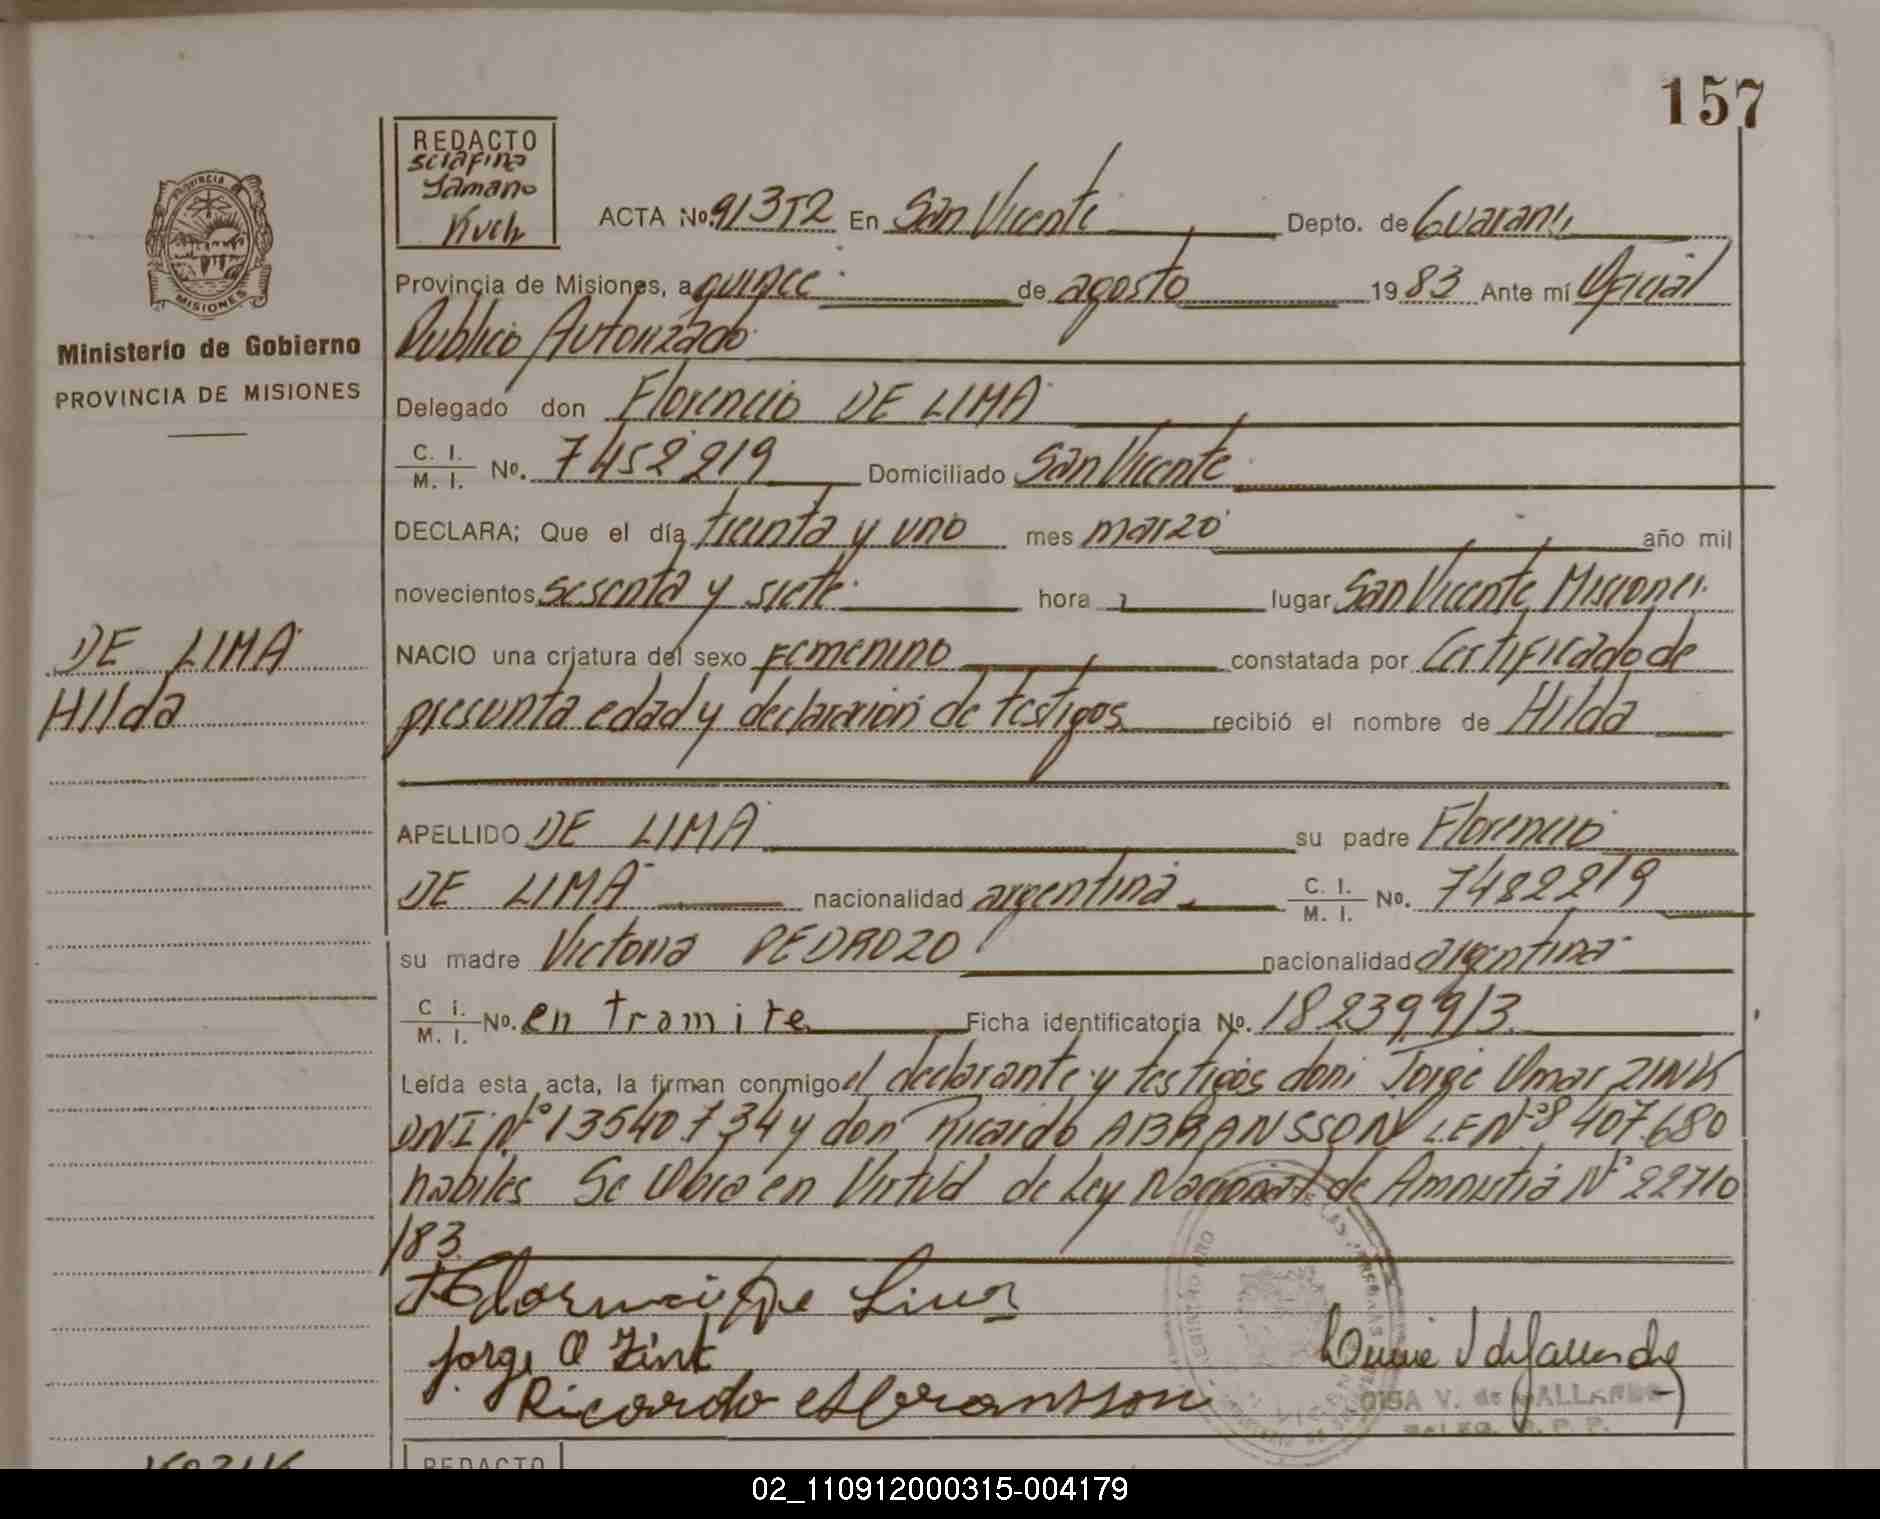 157
REDACTO
serafina
Tamano
Kuch
PROVINCIA DE
MISIONES
Ministerio de Gobierno
PROVINCIA DE MISIONES
ACTA No. 91352 En San Vicente Depto. de Guarani
Provincia de Misiones, a quince de agosto 1983 Ante mí Oficial
Publico Autorizado
Delegado don Florencio DE LIMA
C. I. / M. I. No. 7452219 Domiciliado San Vicente
DECLARA; Que el día treinta y uno mes marzo año mil
novecientos sesenta y siete hora lugar San Vicente, Misiones.
DE LIMA
Hilda
NACIO una criatura del sexo femenino constatada por Certificado de
presunta edad y declaracion de testigos recibió el nombre de Hilda
APELLIDO DE LIMA su padre Florencio
DE LIMA nacionalidad argentina C. I. / M. I. No. 7482219
su madre Victoria PEDROZO nacionalidad argentina
C. I. / M. I. No. en tramite Ficha identificatoria No. 18239913
Leída esta acta, la firman conmigo el declarante y testigos don: Jorge Omar ZINK
DNI Nº 13540734 y don Ricardo ABRANSSON L.E Nº 8407.680
habiles Se Obra en Virtud de Ley Nacional de Amnistia Nº 22710
/83
Florencio De Lima
Jorge O Zink
Ricardo Abransson
REDACTO
02_110912000315-004179